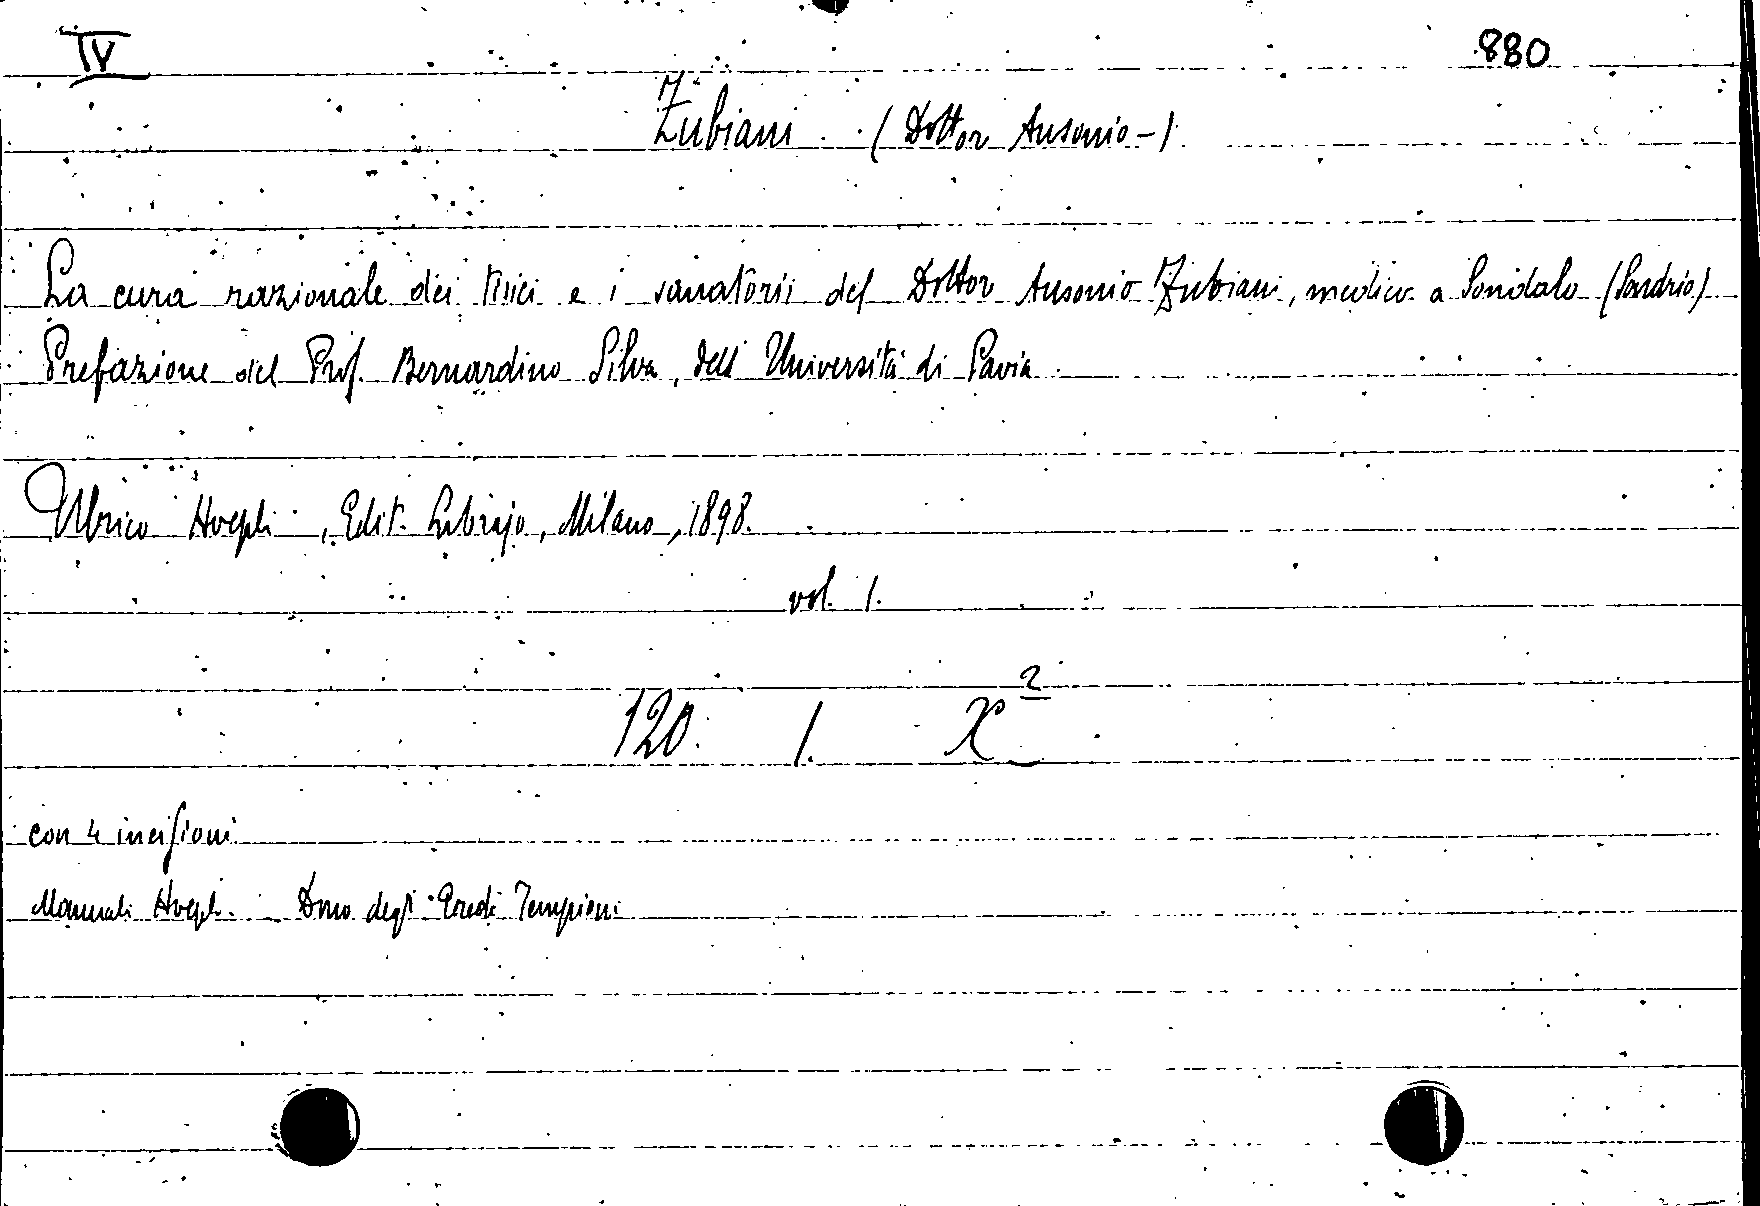 IV 880
Zubiani . (Dottor Ausonio-)
La cura razionale dei tisici e i sanatorii del Dottor Ausonio Zubiani, medico a Sondalo (Sondrio)
Prefazione del Prof. Bernardino Silva, dell' Università di Pavia
Ulrico Hoepli, Edit. Librajo, Milano, 1898.
vol. 1.
120. 1. X²
con 4 incisioni
Manuali Hoepli. Dono degli Eredi Tempioni